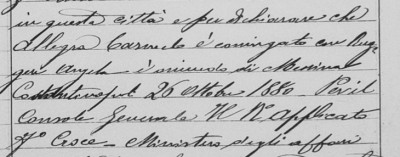 in questa città e per dichiarare che
Allegra Carmelo è coniugato con Rug
è oriundo di Messina
Costantinopoli 20 Ottobre 1880 Per il
Console Generale Il R. Applicato
Croce Ministero degli affari